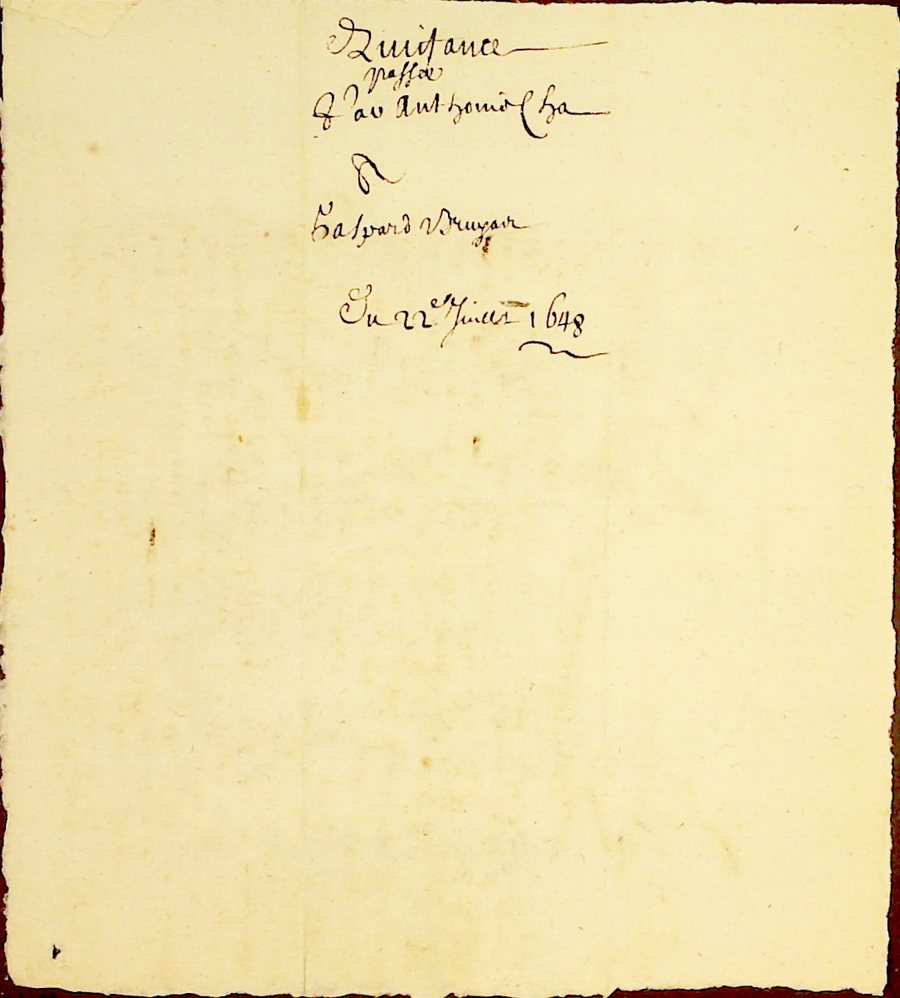 Quictance
passée
Par Anthoine Cha
A
Gaspard Bruyar
Du 22e Juillet 1648